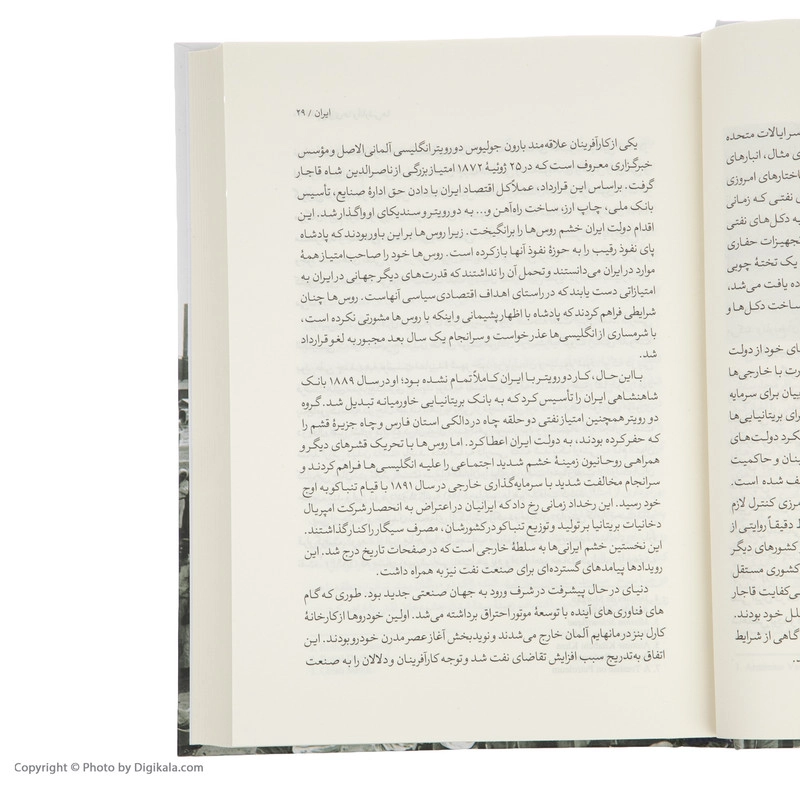 سر ایالات متحده
ی مثال، انبارهای
ساختارهای امروزی
ی نفتی که زمانی
به دکل‌های نفتی
تجهیزات حفاری
یک تختهٔ چوبی
ده یافت می‌شد،
ساخت دکل‌ها و
ای خود از دولت
رت با خارجی‌ها
بیان برای سرمایه
برای بریتانیایی‌ها
کرد دولت‌های
ینان و حاکمیت
ف شده است.
مرزی کنترل لازم
ط دقیقاً روایتی از
کشورهای دیگر
کشوری مستقل
ی‌کفایت قاجار
لل خود بودند.
گاهی از شرایط
ایران / ۲۹
یکی از کارآفرینان علاقه‌مند بارون جولیوس دو رویتر انگلیسی آلمانی‌الاصل و مؤسس
خبرگزاری معروف است که در ۲۵ ژوئیهٔ ۱۸۷۲ امتیاز بزرگی از ناصرالدین شاه قاجار
گرفت. براساس این قرارداد، عملاً کل اقتصاد ایران با دادن حق ادارهٔ صنایع، تأسیس
بانک ملی، چاپ ارز، ساخت راه‌آهن و... به دو رویتر و سندیکای او واگذار شد. این
اقدام دولت ایران خشم روس‌ها را برانگیخت. زیرا روس‌ها بر این باور بودند که پادشاه
پای نفوذ رقیب را به حوزهٔ نفوذ آنها باز کرده است. روس‌ها خود را صاحب امتیاز همهٔ
موارد در ایران می‌دانستند و تحمل آن را نداشتند که قدرت‌های دیگر جهانی در ایران به
امتیازاتی دست یابند که در راستای اهداف اقتصادی سیاسی آنهاست. روس‌ها چنان
شرایطی فراهم کردند که پادشاه با اظهار پشیمانی و اینکه با روس‌ها مشورتی نکرده است،
با شرمساری از انگلیسی‌ها عذرخواست و سرانجام یک سال بعد مجبور به لغو قرارداد
شد.
با این‌حال، کار دو رویتر با ایران کاملاً تمام نشده بود؛ او در سال ۱۸۸۹ بانک
شاهنشاهی ایران را تأسیس کرد که به بانک بریتانیایی خاورمیانه تبدیل شد. گروه
دو رویتر همچنین امتیاز نفتی دو حلقه چاه در دالکی استان فارس و چاه جزیرهٔ قشم را
که حفر کرده بودند، به دولت ایران اعطا کرد. اما روس‌ها با تحریک قشرهای دیگر و
همراهی روحانیون زمینهٔ خشم شدید اجتماعی را علیه انگلیسی‌ها فراهم کردند و
سرانجام مخالفت شدید با سرمایه‌گذاری خارجی در سال ۱۸۹۱ با قیام تنباکو به اوج
خود رسید. این رخداد زمانی رخ داد که ایرانیان در اعتراض به انحصار شرکت امپریال
دخانیات بریتانیا بر تولید و توزیع تنباکو در کشورشان، مصرف سیگار را کنار گذاشتند.
این نخستین خشم ایرانی‌ها به سلطهٔ خارجی است که در صفحات تاریخ درج شد. این
رویدادها پیامدهای گسترده‌ای برای صنعت نفت نیز به همراه داشت.
دنیای در حال پیشرفت در شرف ورود به جهان صنعتی جدید بود. طوری که گام
های فناوری‌های آینده با توسعهٔ موتور احتراق برداشته می‌شد. اولین خودروها از کارخانهٔ
کارل بنز در مانهایم آلمان خارج می‌شدند و نویدبخش آغاز عصر مدرن خودرو بودند. این
اتفاق به‌تدریج سبب افزایش تقاضای نفت شد و توجه کارآفرینان و دلالان را به صنعت
Copyright © Photo by Digikala.com